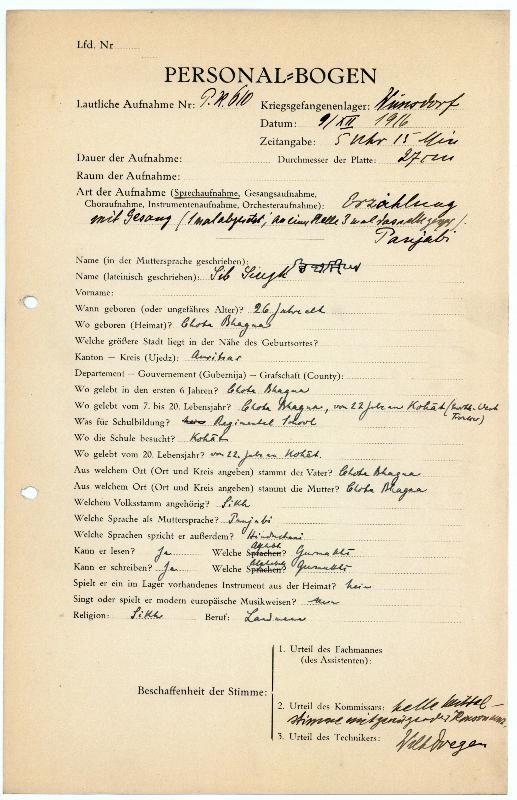 Lfd. Nr
PERSONAL=BOGEN
Lautliche Aufnahme Nr: P.K. 610 Kriegsgefangenenlager: Wünsdorf
Datum: 9/XII 1916
Zeitangabe: 5 Uhr 15 Min
Dauer der Aufnahme: Durchmesser der Platte: 27 cm
Raum der Aufnahme:
Art der Aufnahme (Sprechaufnahme, Gesangsaufnahme,
Choraufnahme, Instrumentenaufnahme, Orchesteraufnahme): Erzählung
mit Gesang (1 mal abgesetzt, an einer Stelle 3 mal dasselbe
Panjabi
Name (in der Muttersprache geschrieben):
Name (lateinisch geschrieben): Sib Singh
Vorname:
Wann geboren (oder ungefähres Alter)? 26 Jahre alt
Wo geboren (Heimat)? Chota Bhagna
Welche größere Stadt liegt in der Nähe des Geburtsortes?
Kanton — Kreis (Ujedz): Amritsar
Departement — Gouvernement (Gubernija) — Grafschaft (County):
Wo gelebt in den ersten 6 Jahren? Chota Bhagna
Wo gelebt vom 7. bis 20. Lebensjahr? Chota Bhagna, von 22 Jahr an Kohât (North-West
Frontier)
Was für Schulbildung? Regimental School
Wo die Schule besucht? Kohât
Wo gelebt vom 20. Lebensjahr? von 22. Jahr an Kohât.
Aus welchem Ort (Ort und Kreis angeben) stammt der Vater? Chota Bhagna
Aus welchem Ort (Ort und Kreis angeben) stammt die Mutter? Chota Bhagna
Welchem Volksstamm angehörig? Sikh
Welche Sprache als Muttersprache? Panjabi
Welche Sprachen spricht er außerdem? Hindustani
Kann er lesen? Ja Welche Sprachen? Gurmukhi
Kann er schreiben? Ja Welche Sprachen? Gurmukhi
Spielt er ein im Lager vorhandenes Instrument aus der Heimat? nein
Singt oder spielt er modern europäische Musikweisen? nein
Religion: Sikh Beruf: Landmann
Beschaffenheit der Stimme:
1. Urteil des Fachmannes
(des Assistenten):
2. Urteil des Kommissars: helle Mittel-
stimme mit genügender Konsonanz.
3. Urteil des Technikers: Wilh Doegen